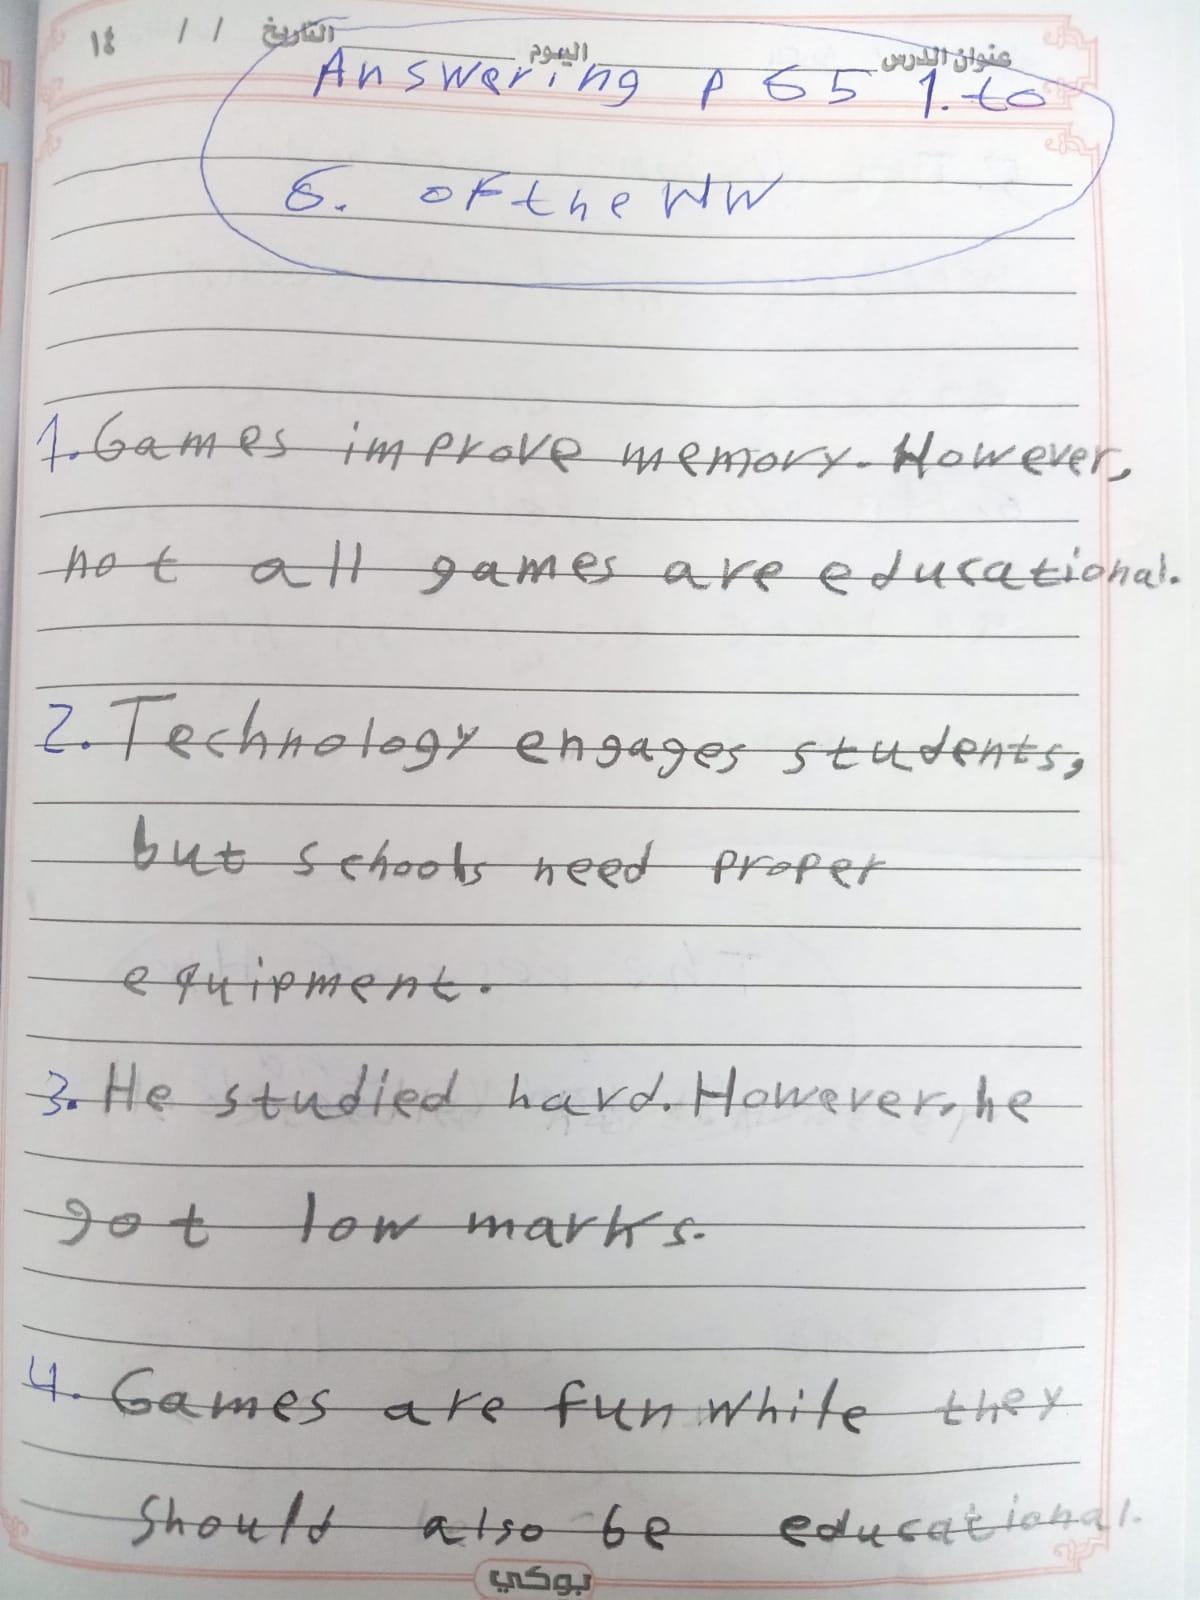 ١٤ / / التاريخ اليوم عنوان الدرس
Answering P 65 1. to
6. of the WW
1. Games improve memory. However,
not all games are educational.
2. Technology engages students,
but schools need proper
equipment.
3. He studied hard. However, he
got low marks.
4. Games are fun while they
should also be educational.
بوكي